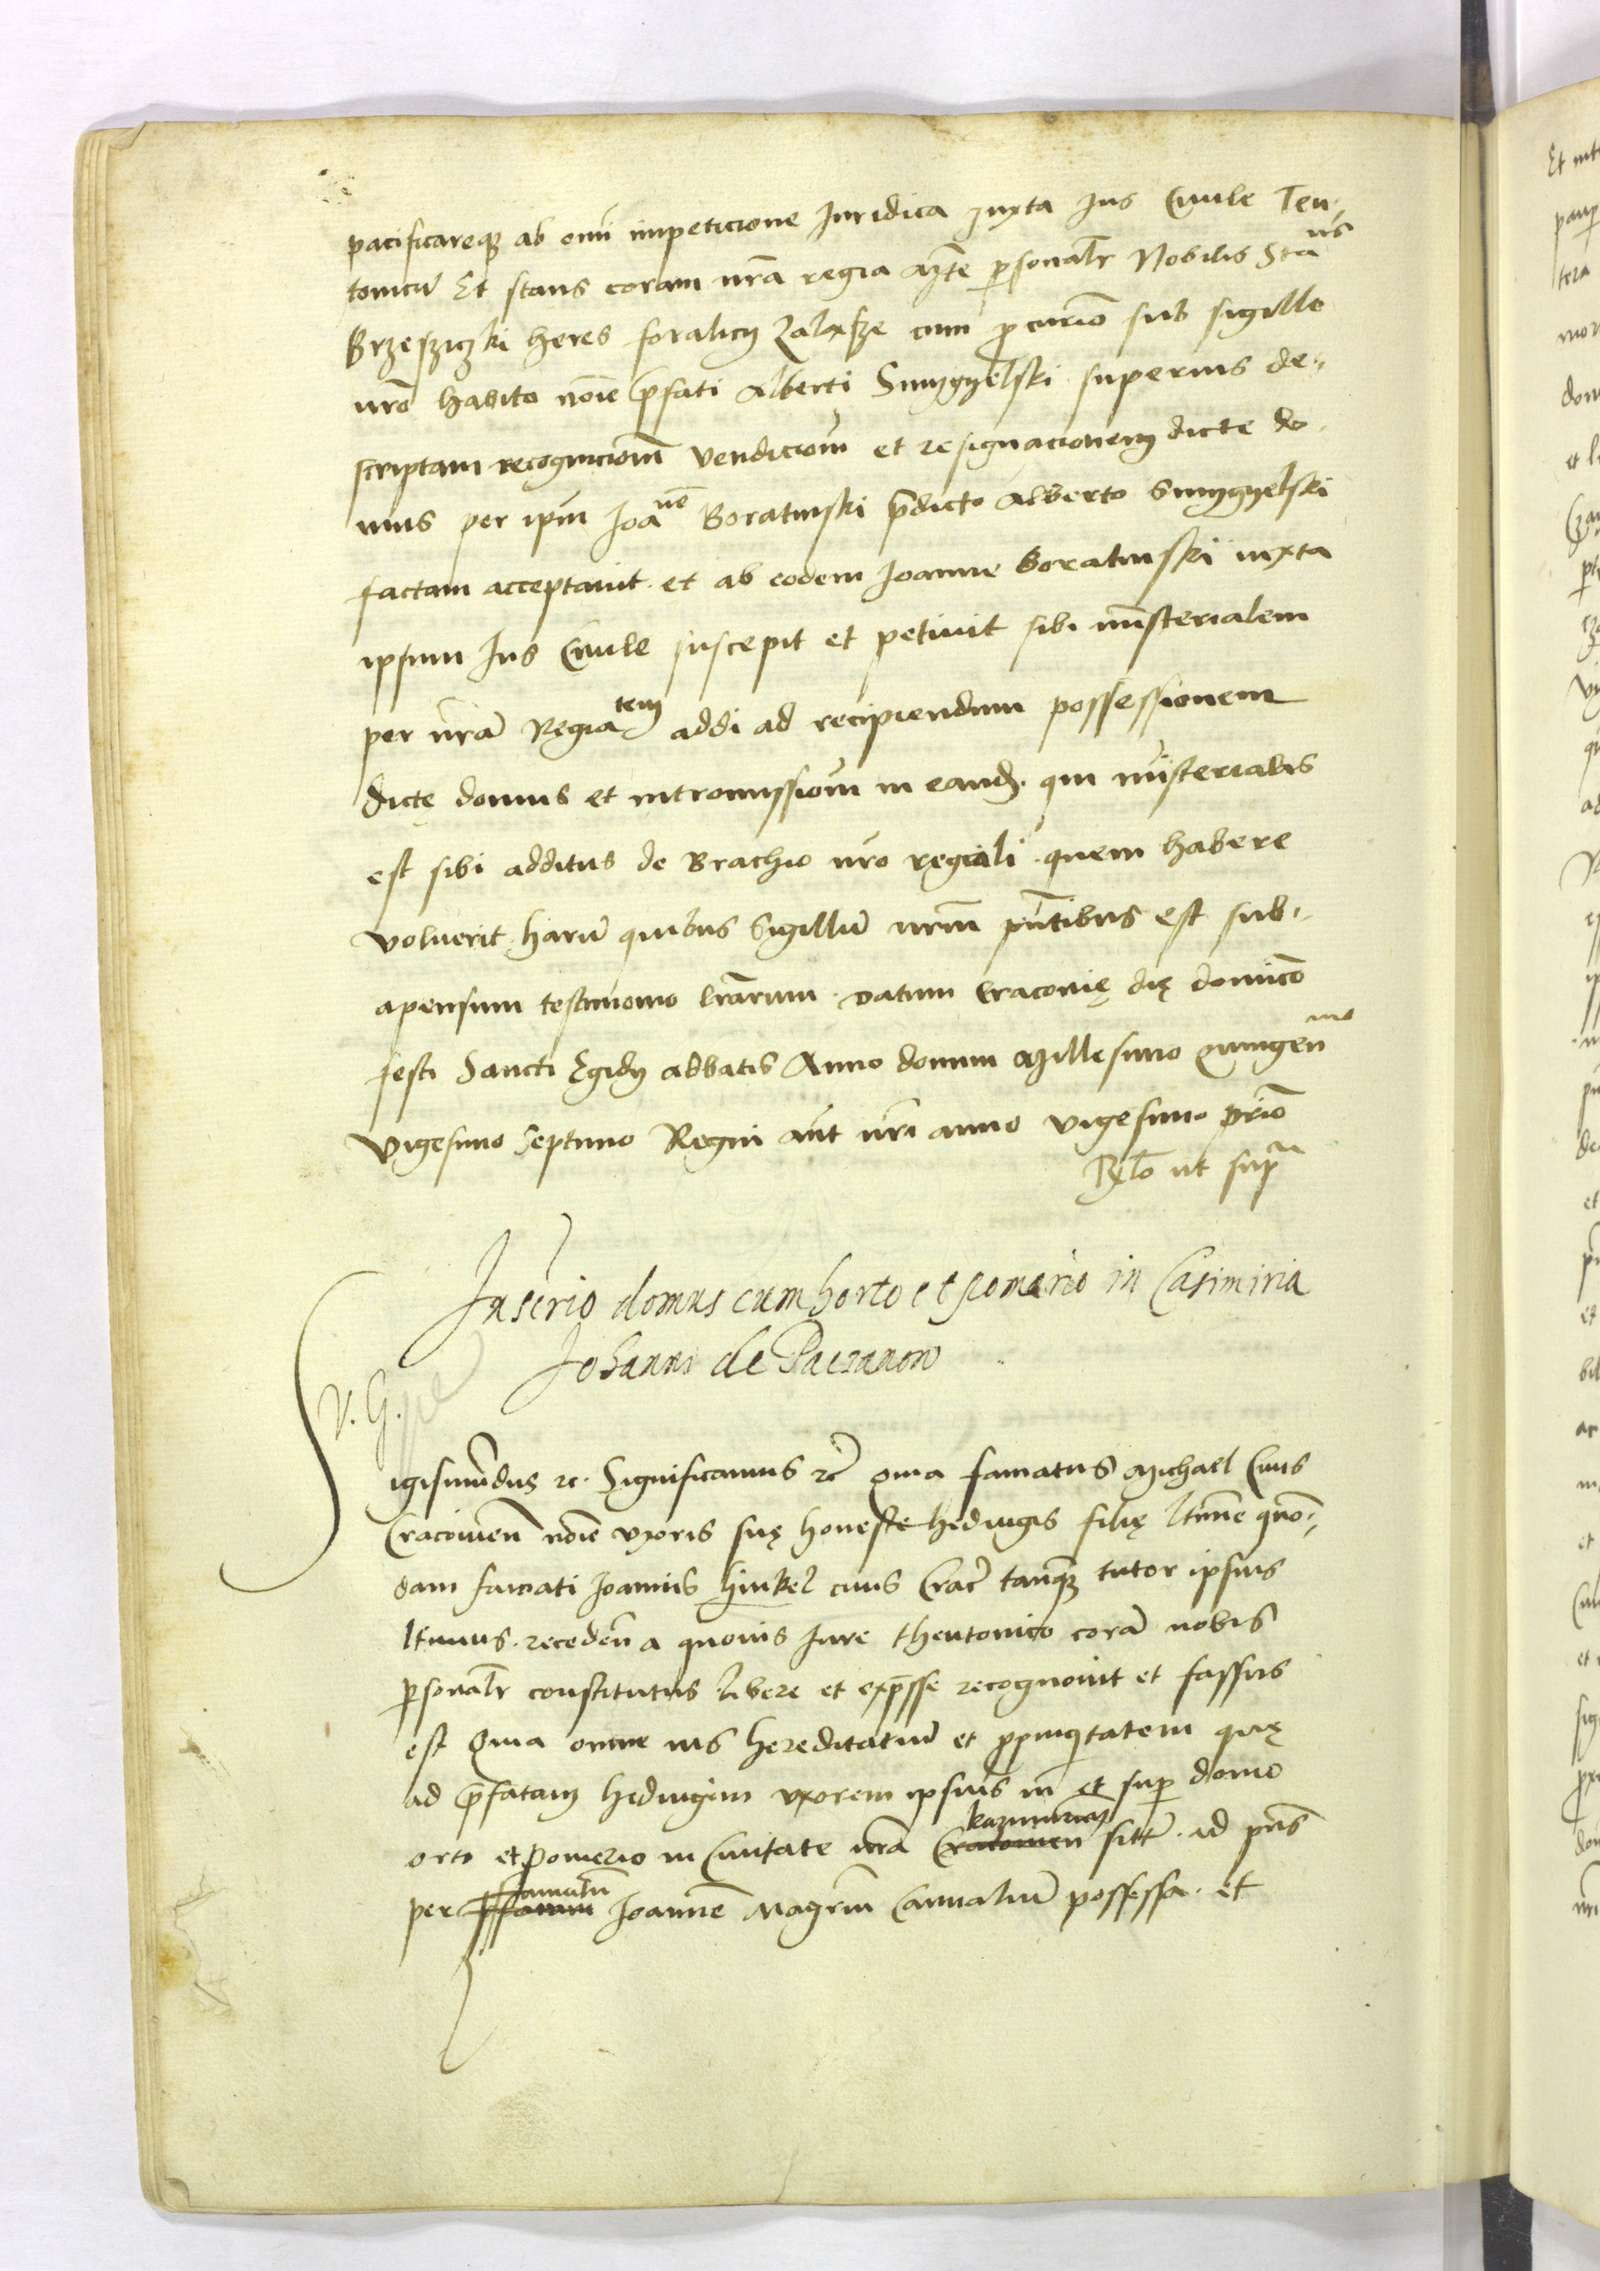 pacificareqz ab omi impeticione Juridica Juxta Jus Civile Teu-
tonicu Et stans coram nra regia Mte psonalr Nobilis Staus
Brzesziczki heres foralicy cum procurio sub sigillo
nro habito noie pfati Alberti Smygyelski superius de-
scriptam recognicionem vendicioem et resignacionem dicte do-
mus per ipm Joane Boratinski pdicto Alberto Smygyelski
factam acceptavit et ab eodem Joanne Boratinski iuxta
ipsum Jus Civile suscepit et petivit sibi misterialem
per nra Regiatem addi ad recipiendum possessionem
dictę domus et intromissioem in eand. qui misterialis
est sibi additus de Brachio nro regiali quem habere
voluerit harum quibus Sigillum nrm pntibus est sub-
apensum testimonio lrarum datum Cracovię dię dominico
festi Sancti Egidy abbatis Anno domini Millesimo Quingenmo
vigesimo septimo Regni aut nri anno vigesimo primo
Rlo ut supra
Inscrio domus cum horto et pomario in Casimiria
Johanni de Paczanow
V. G.
Sigismundus rc. Significamus rc Quia famatus Michael Civis
Cracovien noie uxoris suę honeste hedvigis filię ltimne quo-
dam famati Joannis hinkel civis Crac tanqz tutor ipsius
ltimus receden a quovis Jure theutonico cora nobis
psonalr constitutus libere et expsse recognovit et fassus
est Quia omne ius hereditariu et ppinqtatem quę
ad pfatam hedvigim uxorem ipsius in et sup domo
orto et pomerio in Civitate nra Cracovien kazimirien sitt. ad pns
per famatum Joannem Magrm possessa et